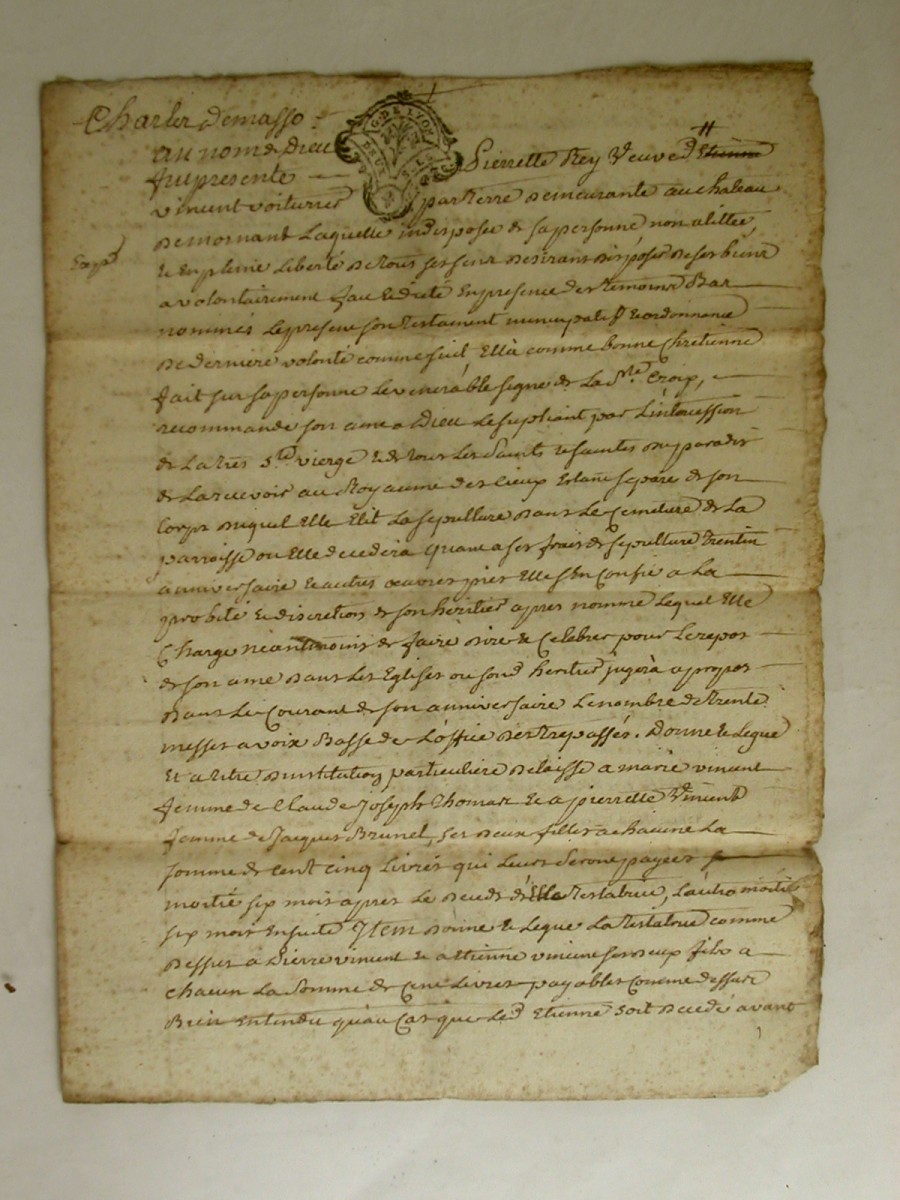 Charles Demasso
au nom de Dieu
fut presente
Pierrette Rey Veuve d # Etienne
vincent voiturier par terre demeurante au chateau
de mornant Laquelle indisposée de sa personne non alittée,
Exp.d
& en pleine Liberté de tous ses sens desirant disposer de ses biens
a volontairement fait & dicté en presence des temoins Bas
nommés le present son testament nuncupatif & ordonnance
de derniere volonté comme suit Ella comme bonne Chretienne
fait sur sa personne le venerable signe de la Ste. Croix,
recommande son ame a Dieu le supliant par l'intercession
de La tres Ste vierge & de tous les Saints & saintes du paradis
de La recevoir au Royaume des cieux Etant separé de son
Corps duquel Elle Elit La sepulture dans Le Cemetiere de La
parroisse ou Elle decedera quant a ses frais de sepulture trentin
anniversaire & autres oeuvres pies Elle s'en Confie a La
probité & discretion de son heritier apres nommé lequel Elle
Charge neantmoins de faire dire & Celebrer pour le repos
de son ame dans Les Eglises ou sond heritier jugera a propos
dans Le Courant de son anniversaire Le nombre de trente
messes a voix Basse de L'office des trepassés. Donne & Legue
Et a titre d'institution particuliere delaisse a marie vincent
femme de Claude Joseph Thomas & a pierrette Vincent
femme de Jacques Brunel, ses deux filles a chacune La
somme de cent cinq Livres qui Leurs seront payées
moitié six mois apres Le deceds de la testatrice, L'autre moitié
six mois ensuite Item donne & Legue La testatrice comme
dessus a Pierre vincent & a Etienne vincent ses deux fils a
chacun La Somme de Cent Livres payables comme dessus
Bien Entendu qu'au Cas que Led Etienne soit decedé avant